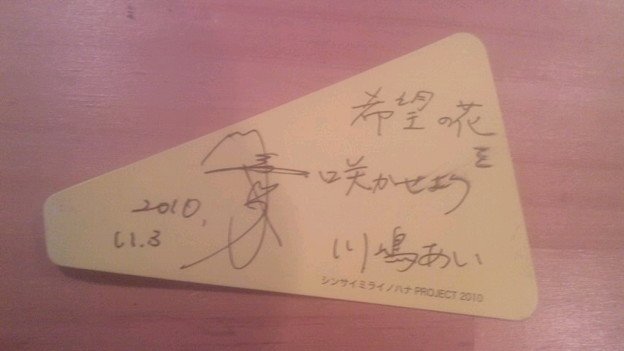 希望の花
咲かせよう
川嶋あい
2010,
11.3
シンサイミライノハナ PROJECT 2010